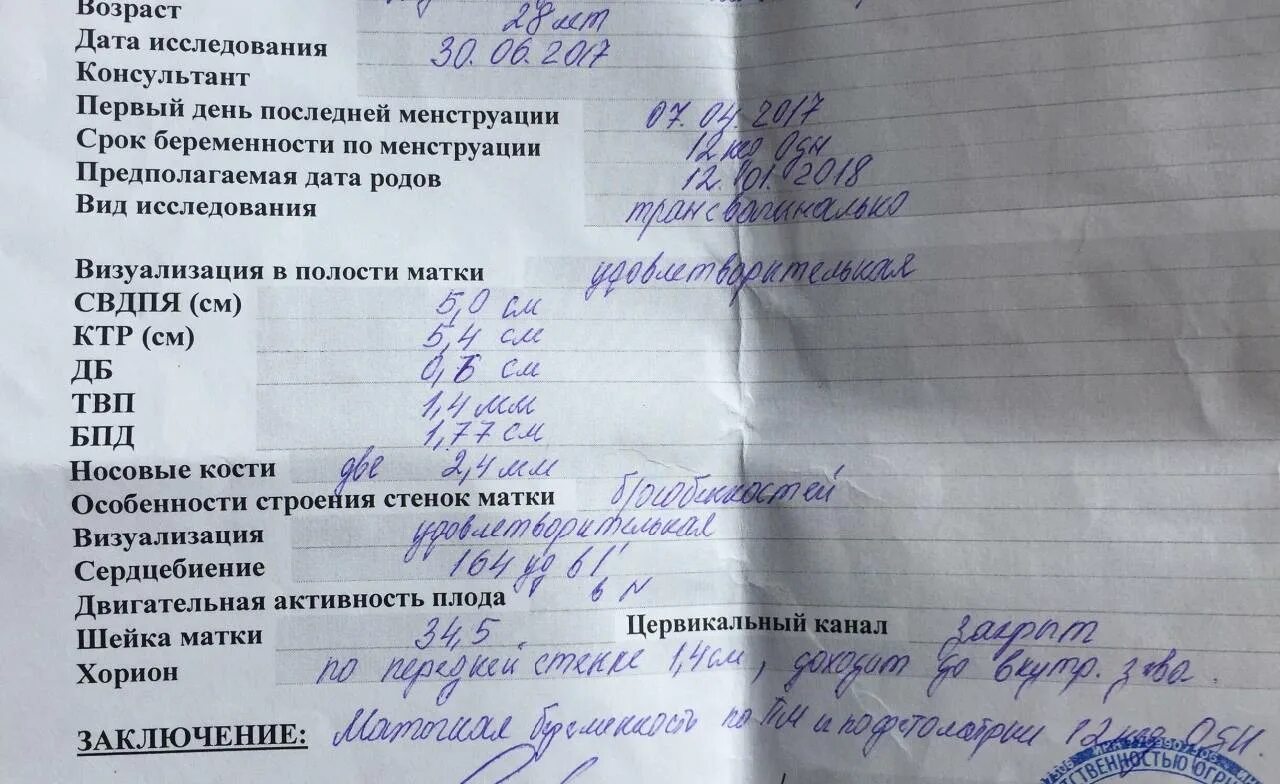 Возраст 28 лет
Дата исследования 30.06.2017
Консультант
Первый день последней менструации 07.04 2017
Срок беременности по менструации 12нед 0дн
Предполагаемая дата родов 12.01.2018
Вид исследования трансвагинально
Визуализация в полости матки удовлетворительная
СВДПЯ (см) 5,0 см
КТР (см) 5,4 см
ДБ см
ТВП 1,4 мм
БПД 1,77 см
Носовые кости две 2,4 мм
Особенности строения стенок матки б/особенностей
Визуализация удовлетворительная
Сердцебиение 164 уд в 1'
Двигательная активность плода в N
Шейка матки 34,5 Цервикальный канал закрыт
Хорион по передней стенке 1,4см, доходит до внутр. зева.
ЗАКЛЮЧЕНИЕ: Маточная беременность по ПМ и по фетометрии 12 нед 0дн.
ТВЕННОСТЬЮ